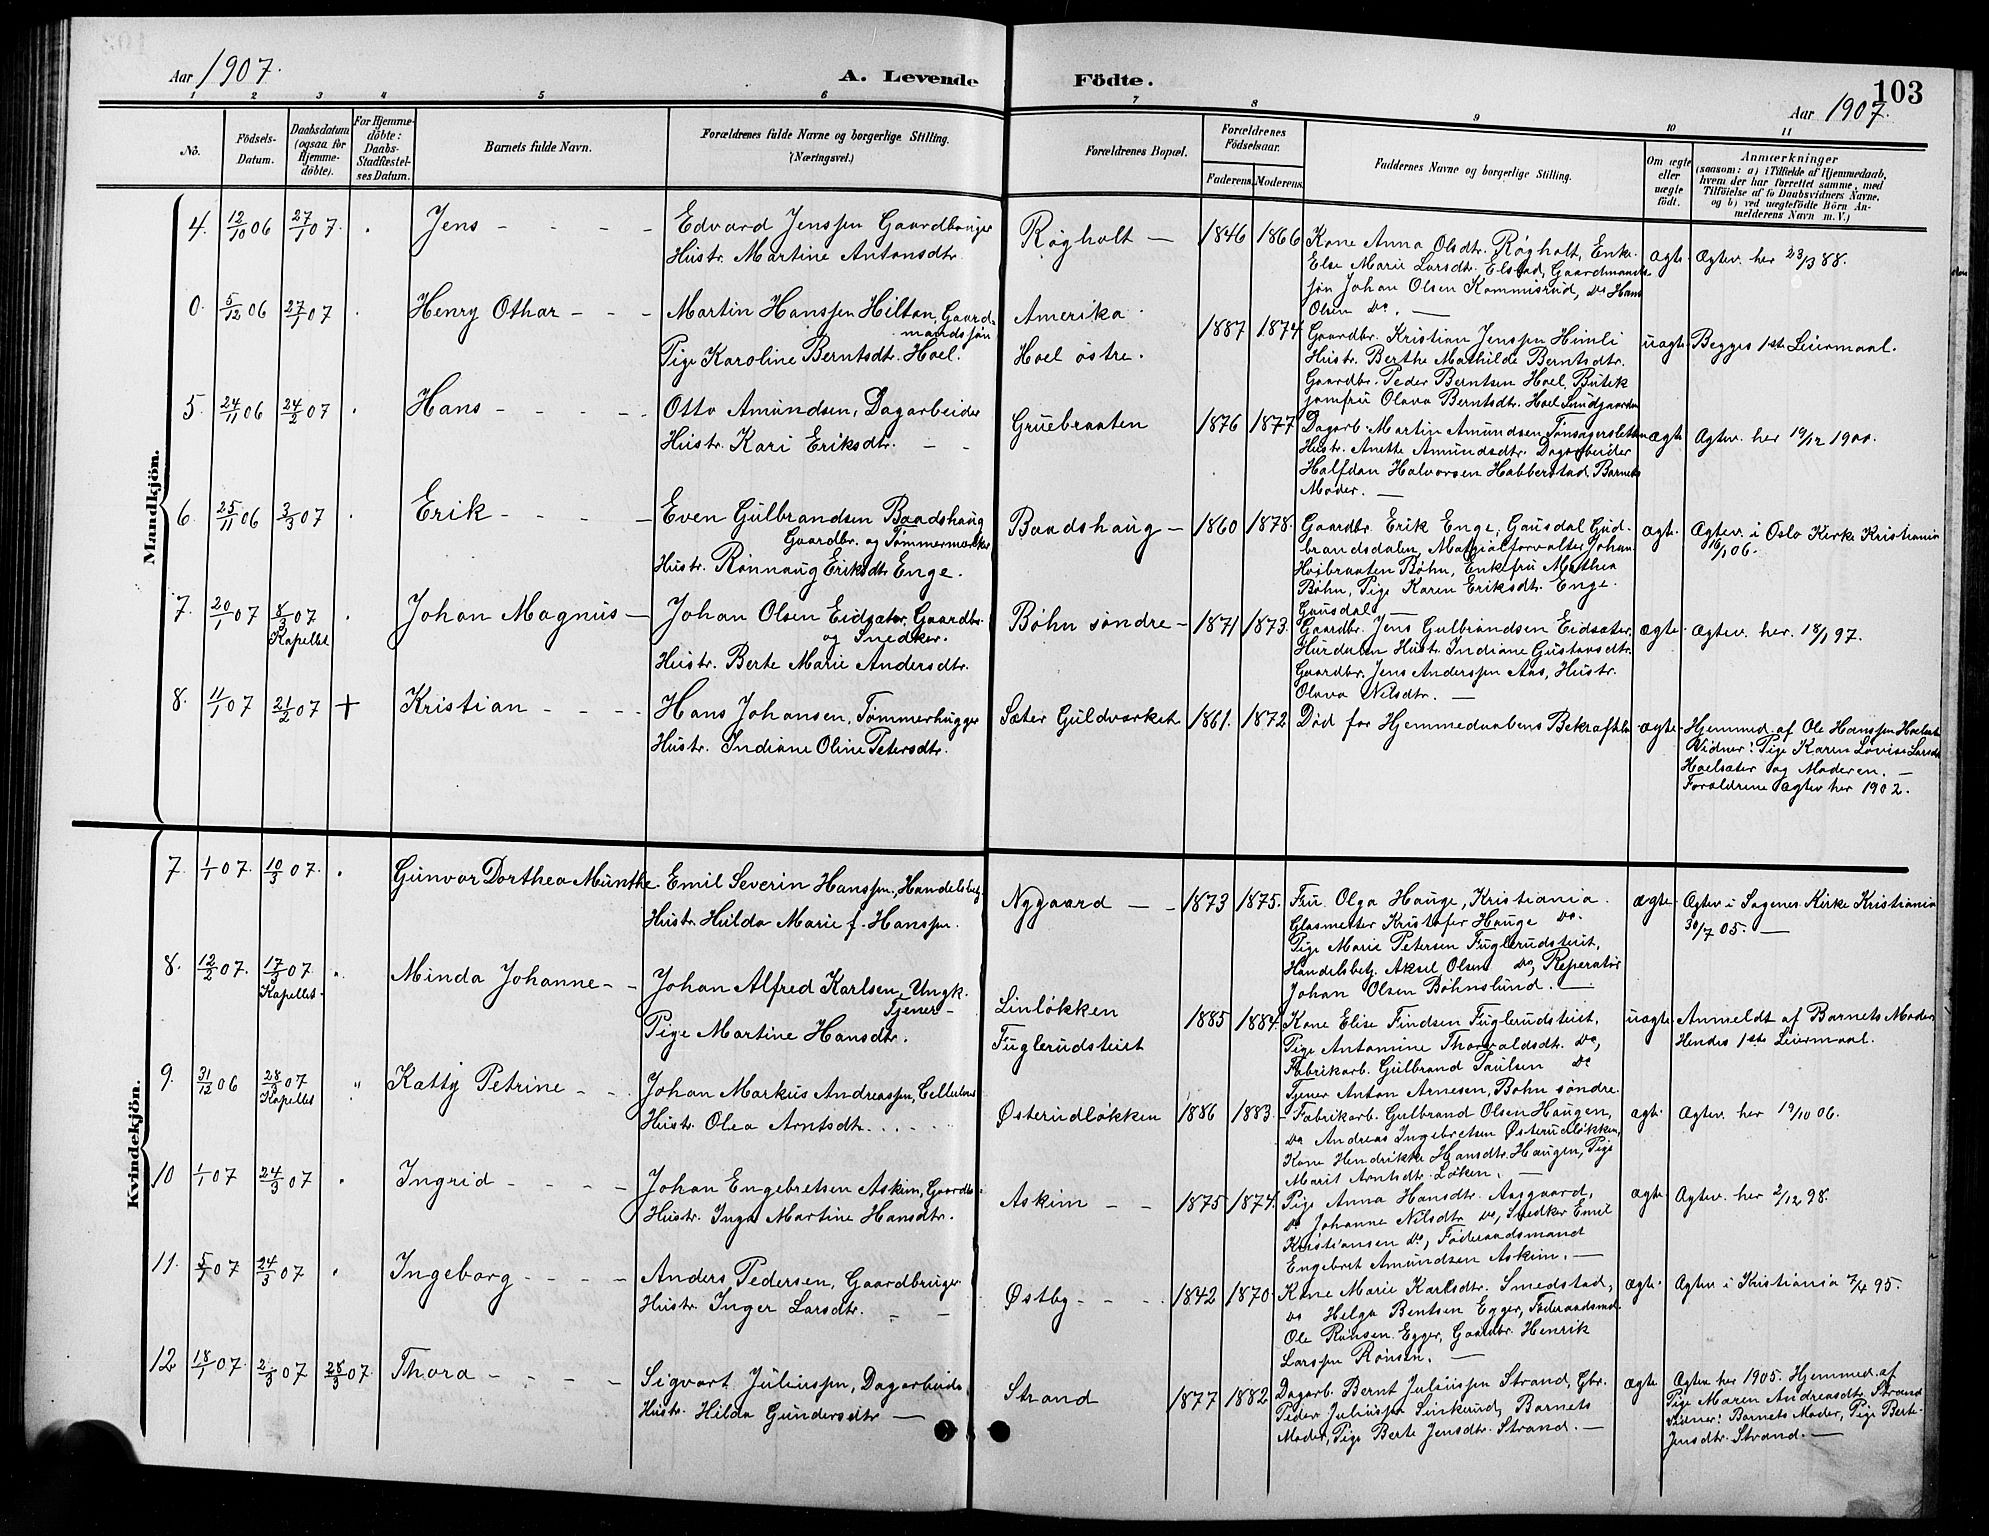 Aar 1907.
A. Levende Födte.
103
Aar 1907.
1 2 3 4 5 6 7 8 9 10 11
No.
Födsels-Datum.
Daabsdatum (ogsaa for Hjemme-döbte).
For Hjemme-döbte: Daabs-Stadfæstel-ses Datum.
Barnets fulde Navn.
Forældrenes fulde Navne og borgerlige Stilling.
(Næringsvei.)
Forældrenes Bopæl.
Forældrenes Födselsaar.
Faderens. Moderens.
Faddernes Navne og borgerlige Stilling.
Om ægte eller uægte födt.
Anmærkninger
(saasom: a) i Tilfælde af Hjemmedaab,
hvem der har forrettet samme, med
Tilföielse af to Daabsvidners Navne,
og b) ved uegtefödte Börn An-
melderens Navn m. V.)
Mandkjön.
4. 12/10 06 27/1 07. Jens - - - -
Edvard Jenssen Gaardbruger
Hustr. Martine Antonsdtr.
Røgholt —
1846 1866
Kone Anna Olsdtr. Røgholt, Enke
Else Marie Larsdtr. Elstad, Gaardmands
søn Johan Olsen Kommisrud, Do Hans
Olsen Do. —
ægte. Ægtev. her 23/3 88.
0. 5/12 06 27/1 07 Henry Othar - - -
Martin Hanssen Hilton, Gaard-
mandssøn
Pige Karoline Berntsdtr. Hoel.
Amerika.
Hoel østre.
1887 1874
Gaardbr. Kristian Jenssen Himli
Hustr. Berthe Mathilde Berntsdtr.
Gaardbr. Peder Berntsen Hoel, Butik
jomfru Olava Berntsdtr. Hoel
uægte. Begges 1ste Leiermaal.
5. 24/11 06 24/2 07 Hans - - - -
Otto Amundsen, Dagarbeider
Hustr. Kari Eriksdtr. - -
Gruebraaten
1876 1877
Dagarb. Martin Amundsen Tonsagersletten
Hustr. Anette Amundsdtr. Dagarbeider
Halfdan Halvorsen Habberstad Barnets
Moder. —
ægte Ægtev. her 19/12 1900.
6. 25/11 06 3/3 07 Erik - - - -
Even Gulbrandsen Baadshaug
Gaardbr. og Tømmermærker
Hustr. Rønnaug Eriksdtr Enge.
Baadshaug -
1860 1878.
Gaardbr. Erik Enge, Gausdal Gud-
brandsdalen, Matrialforvalter Johan
Høibraaten Bøhn, Enkefru Mathea
Bøhn, Pige Karen Eriksdtr. Enge
Gausdal —
ægte. Ægtev. i Oslo Kirke Kristiania
16/1 06.
7. 20/1 07 8/3 07 Kapellet Johan Magnus -
Johan Olsen Eidsæter, Gaardbr.
og Snedker.
Hustr. Berte Marie Andersdtr.
Bøhn søndre -
1871 1873.
Gaardbr. Jens Gulbrandsen Eidsæter,
Hurdalen Hustr. Indiane Gustavsdtr.
Gaardbr. Jens Anderssen Aas, Hustr.
Olava Nilsdtr. —
ægte. Ægtev. her. 18/1 97.
8. 11/1 07 21/2 07 + Kristian - - - -
Hans Johansen, Tømmerhugger
Hustr. Indiane Oline Petersdtr.
Sæter Guldværket
1861. 1872
Død før Hjemmedaabens Bekræftelse
ægte. Hjemmed. af Ole Hanssen Hoelsæter
Vidner: Pige Karen Lovise Larsdtr
Hoelsæter og Moderen. —
Forældrene Ægtev her 1902.
Kvindekjön.
7. 1/1 07. 10/3 07. Gunvor Dorthea Munthe
Emil Severin Hanssen, Handelsbetj.
Hustr. Hilda Marie f. Hanssen.
Nygaard - -
1873 1875.
Fru Olga Hauge, Kristiania.
Glasmester Kristofer Hauge Do.
Pige Marie Petersen Fuglerudsteiet,
Handelsbetj. Aksel Olsen Do, Reperatør
Johan Olsen Bøhnslund. —
ægte. Ægtev i Sagenes Kirke Kristiania
30/7 05. —
8. 12/2 07. 17/3 07 Kapellet. Minda Johanne - -
Johan Alfred Karlsen, Ungk.
Tjener -
Pige Martine Hansdtr.
Linløkken
Fuglerudsteiet
1885 1884.
Kone Elise Findsen Fuglerudsteiet,
Pige Antomine Thorvaldsdtr. Do,
Fabrikarb. Gulbrand Paulsen Do
Tjener Anton Arnesen, Bøhn søndre
uægte. Anmeldt af Barnets Moder
Hendes 1ste Leiermaal.
9. 31/12 06 28/3 07 Kapellet Katty Petrine - -
Johan Markus Andreassen,
Hustr. Olea Arntsdtr. . . .
Østerudløkken
1886 1883.
Fabrikarb. Gulbrand Olsen Haugen,
Do Andreas Ingebretsen Østerudløkken,
Kone Hendrikke Hansdtr. Haugen, Pige
Marit Arntsdtr. Løken. —
ægte. Ægtev. her 19/10 06.
10 1/1 07 24/3 07 Ingrid - - - -
Johan Engebretsen Askim, Gaardbr.
Hustr. Inga Martine Hansdtr.
Askim - -
1875 1874.
Pige Anna Hansdtr. Aasgaard,
Do Johanne Nilsdtr Do, Snedker Emil
Kristiansen Do, Føderaadsmand
Engebret Amundsen Askim. —
ægte. Ægtev. her 2/12 98.
11. 5/1 07 24/3 07 Ingeborg - - - -
Anders Pedersen, Gaardbruger
Hustr. Inger Larsdtr. - -
Østby - - -
1842 1870
Kone Marie Karlsdtr. Smedstad,
Do Helga Bentsen Egger, Føderaadsmd.
Ole Rønsen Egger, Gaardbr. Henrik
Larssen Rønsen. —
ægte. Ægtev i Kristiania 7/4 95.
12 18/1 07. 2/3 07 28/3 07. Thora - - - -
Sigvart Juliussen, Dagarbeider
Hustr. Hilda Gundersdtr —
Strand
1877 1882
Dagarb. Bernt Juliussen Strand, Gbr.
Peder Juliussen Linkerud, Barnets
Moder, Pige Berte Jensdtr. Strand. —
ægte Ægtev. her 1905. Hjemmed. af
Pige Maren Andreasdtr. Strand
Vidner: Barnets Moder, Pige Berte
Jensdtr. Strand. —